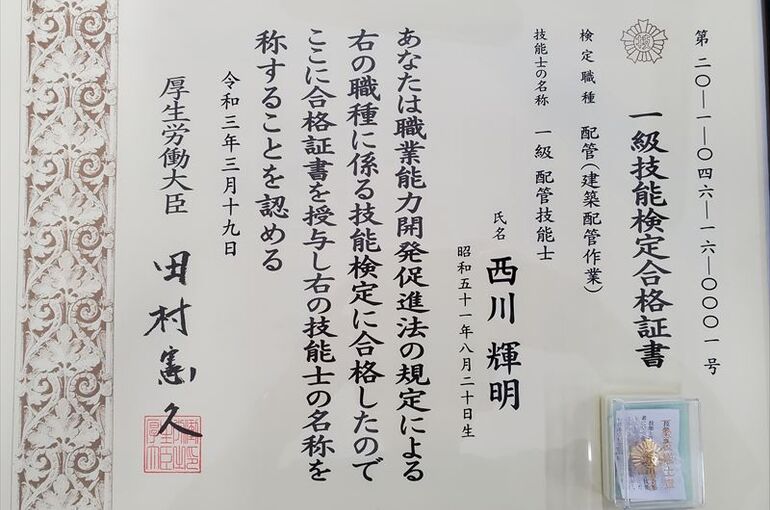 第二〇―一―〇四六―一六―〇〇〇一号
一級技能検定合格証書
検定職種 配管(建築配管作業)
技能士の名称 一級 配管技能士
氏名 西川 輝明
昭和五十一年八月二十日生
あなたは職業能力開発促進法の規定による
右の職種に係る技能検定に合格したので
ここに合格証書を授与し右の技能士の名称を
称することを認める
令和三年三月十九日
厚生労働大臣
田村憲久